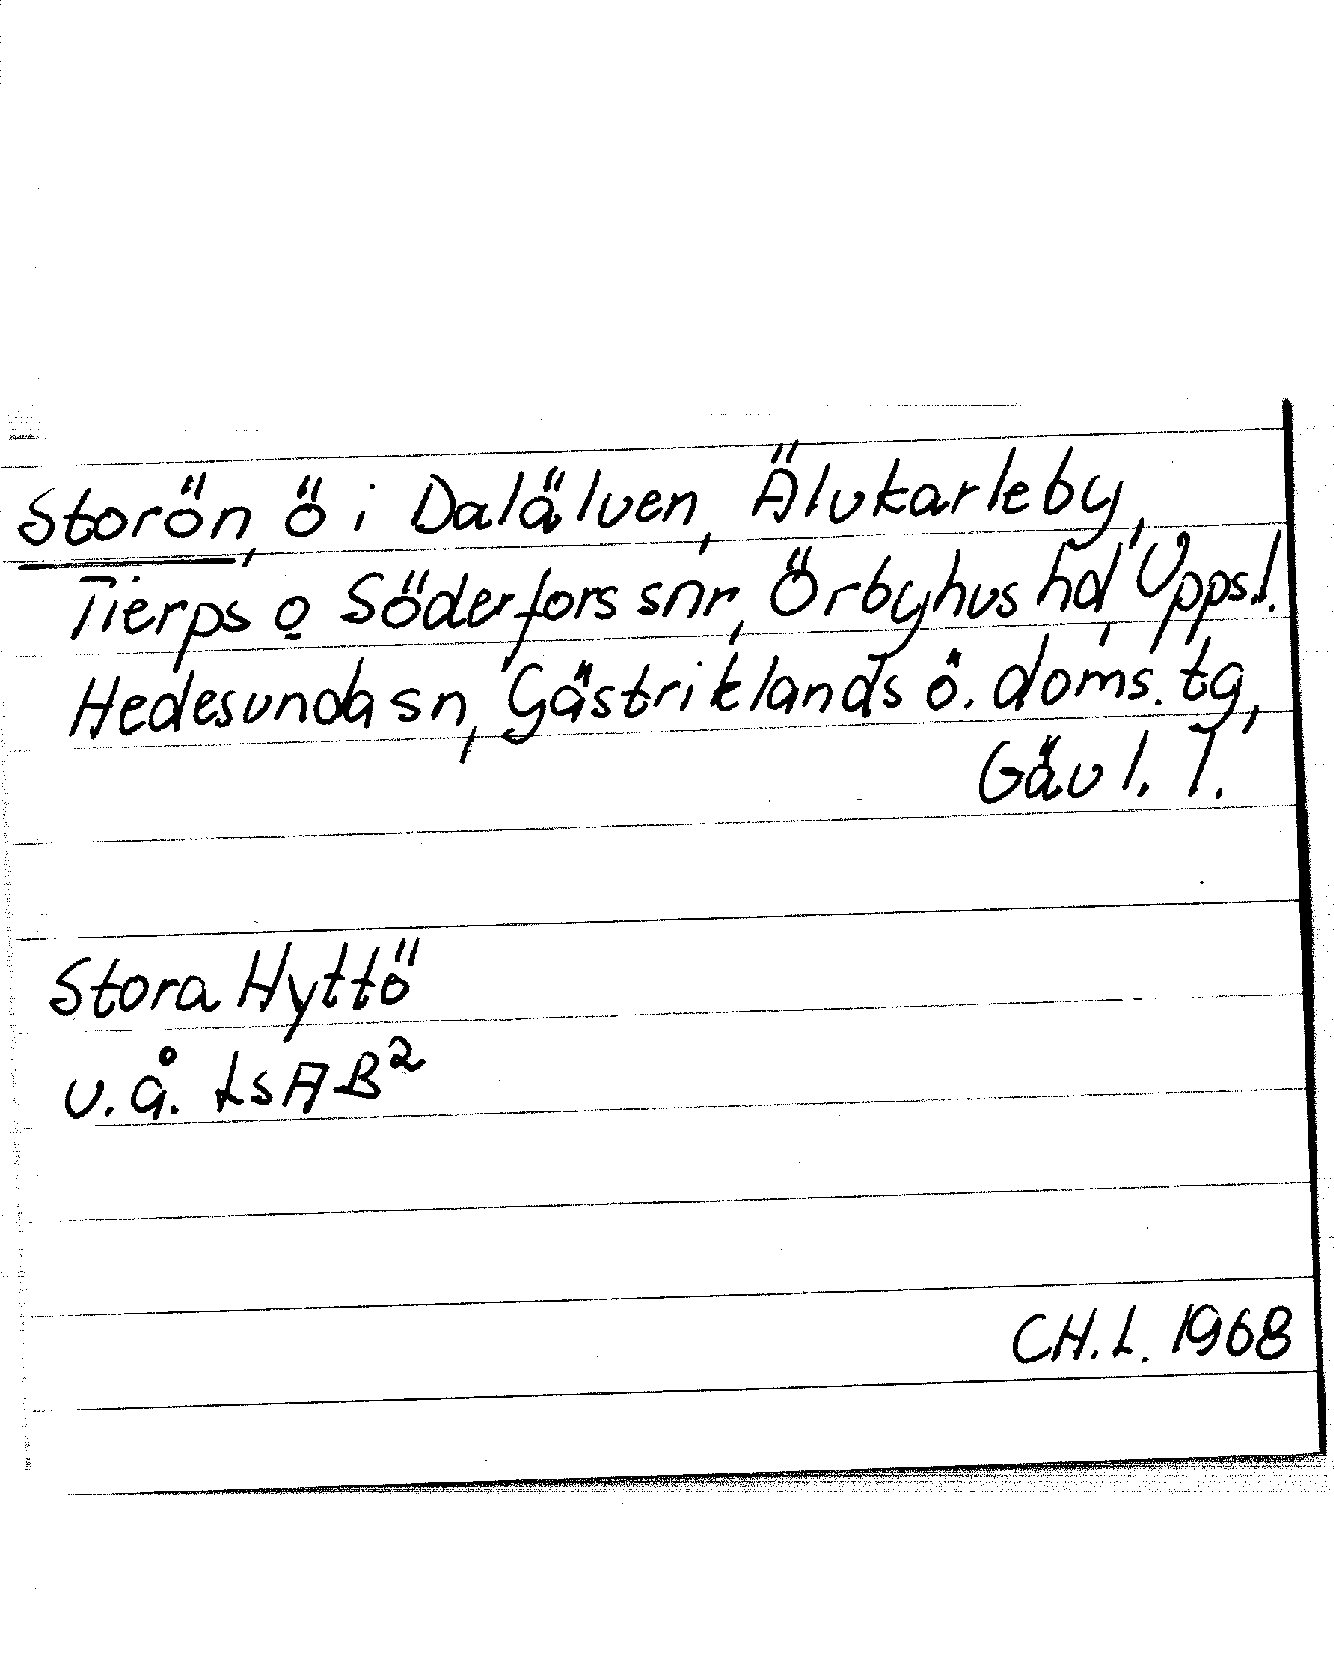 Storön, ö i Dalälven, Älvkarleby,
Tierps o Söderfors snr, Örbyhus hd, Upps.l.
Hedesunda sn, Gästriklands ö. doms. tg,
Gävl. l.
Stora Hyttö
u.å. LsAB²
CH.L. 1968